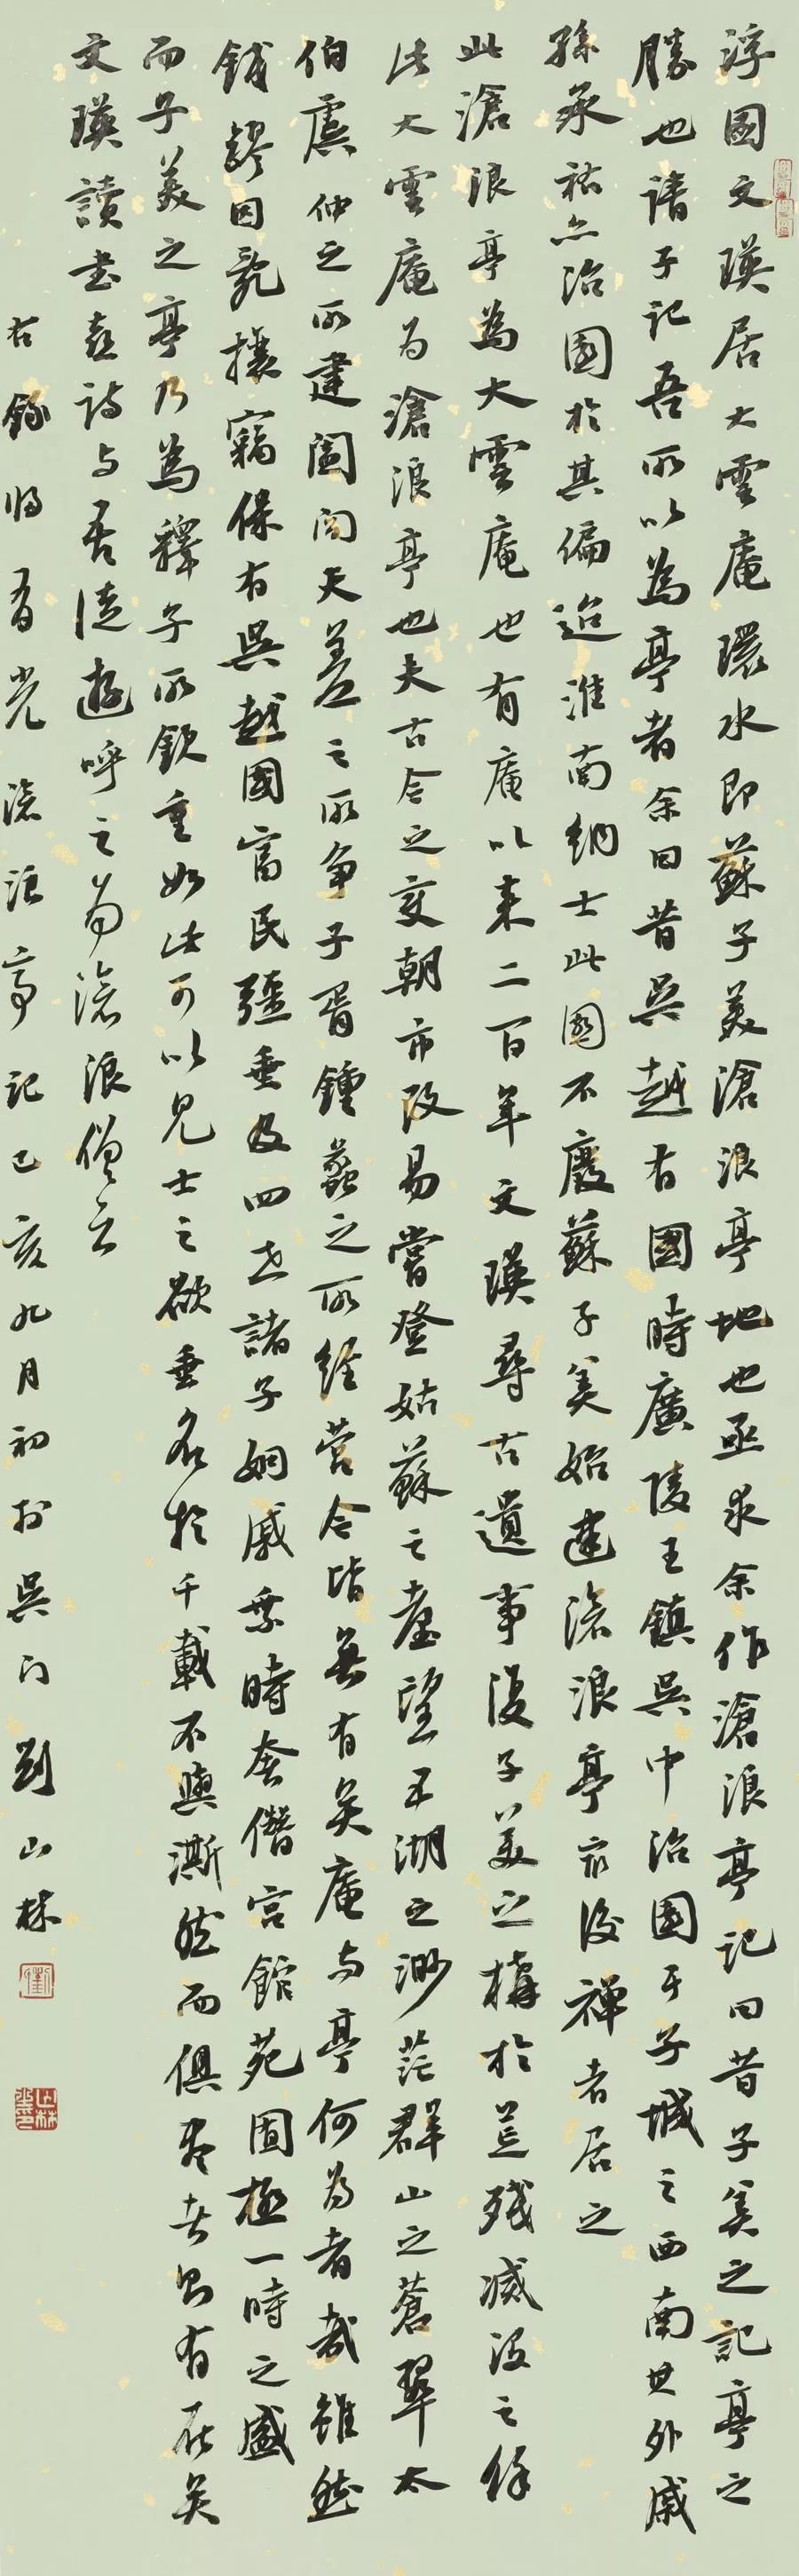 浮圖文瑛居大雲庵環水即蘇子美滄浪亭地也亟求余作滄浪亭記曰昔子美之記亭之
勝也請子記吾所以為亭者余曰昔吳越有國時廣陵王鎮吳中治園于子城之西南其外戚
孫承祐亦治園於其偏迨淮南納土此園不廢蘇子美始建滄浪亭最後禪者居之
此滄浪亭為大雲庵也有庵以來二百年文瑛尋古遺事復子美之構於荒殘滅沒之餘
此大雲庵為滄浪亭也夫古今之變朝市改易嘗登姑蘇之臺望五湖之渺茫群山之蒼翠太
伯虞仲之所建闔閭夫差之所爭子胥鍾蠡之所經營今皆無有矣庵與亭何為者哉雖然
錢鏐因亂攘竊保有吳越國富民彊垂及四世諸子姻戚乘時奢僭宮館苑囿極一時之盛
而子美之亭乃為釋子所欽重如此可以見士之欲垂名於千載不與澌然而俱盡者則有在矣
文瑛讀書喜詩與吾徒遊呼之為滄浪僧云
右錄歸有光滄浪亭記己亥九月初於吳門劉山林